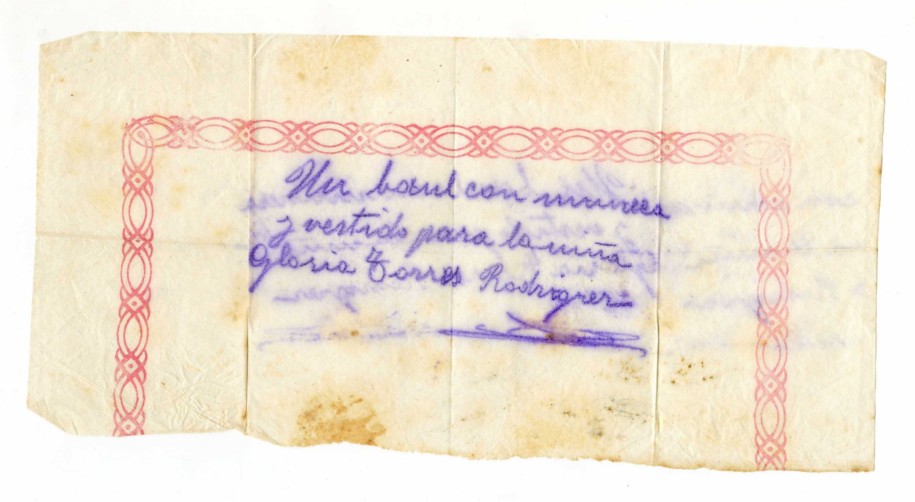 Un baul con muñeca
y vestido para la niña
Gloria Torres Rodriguez